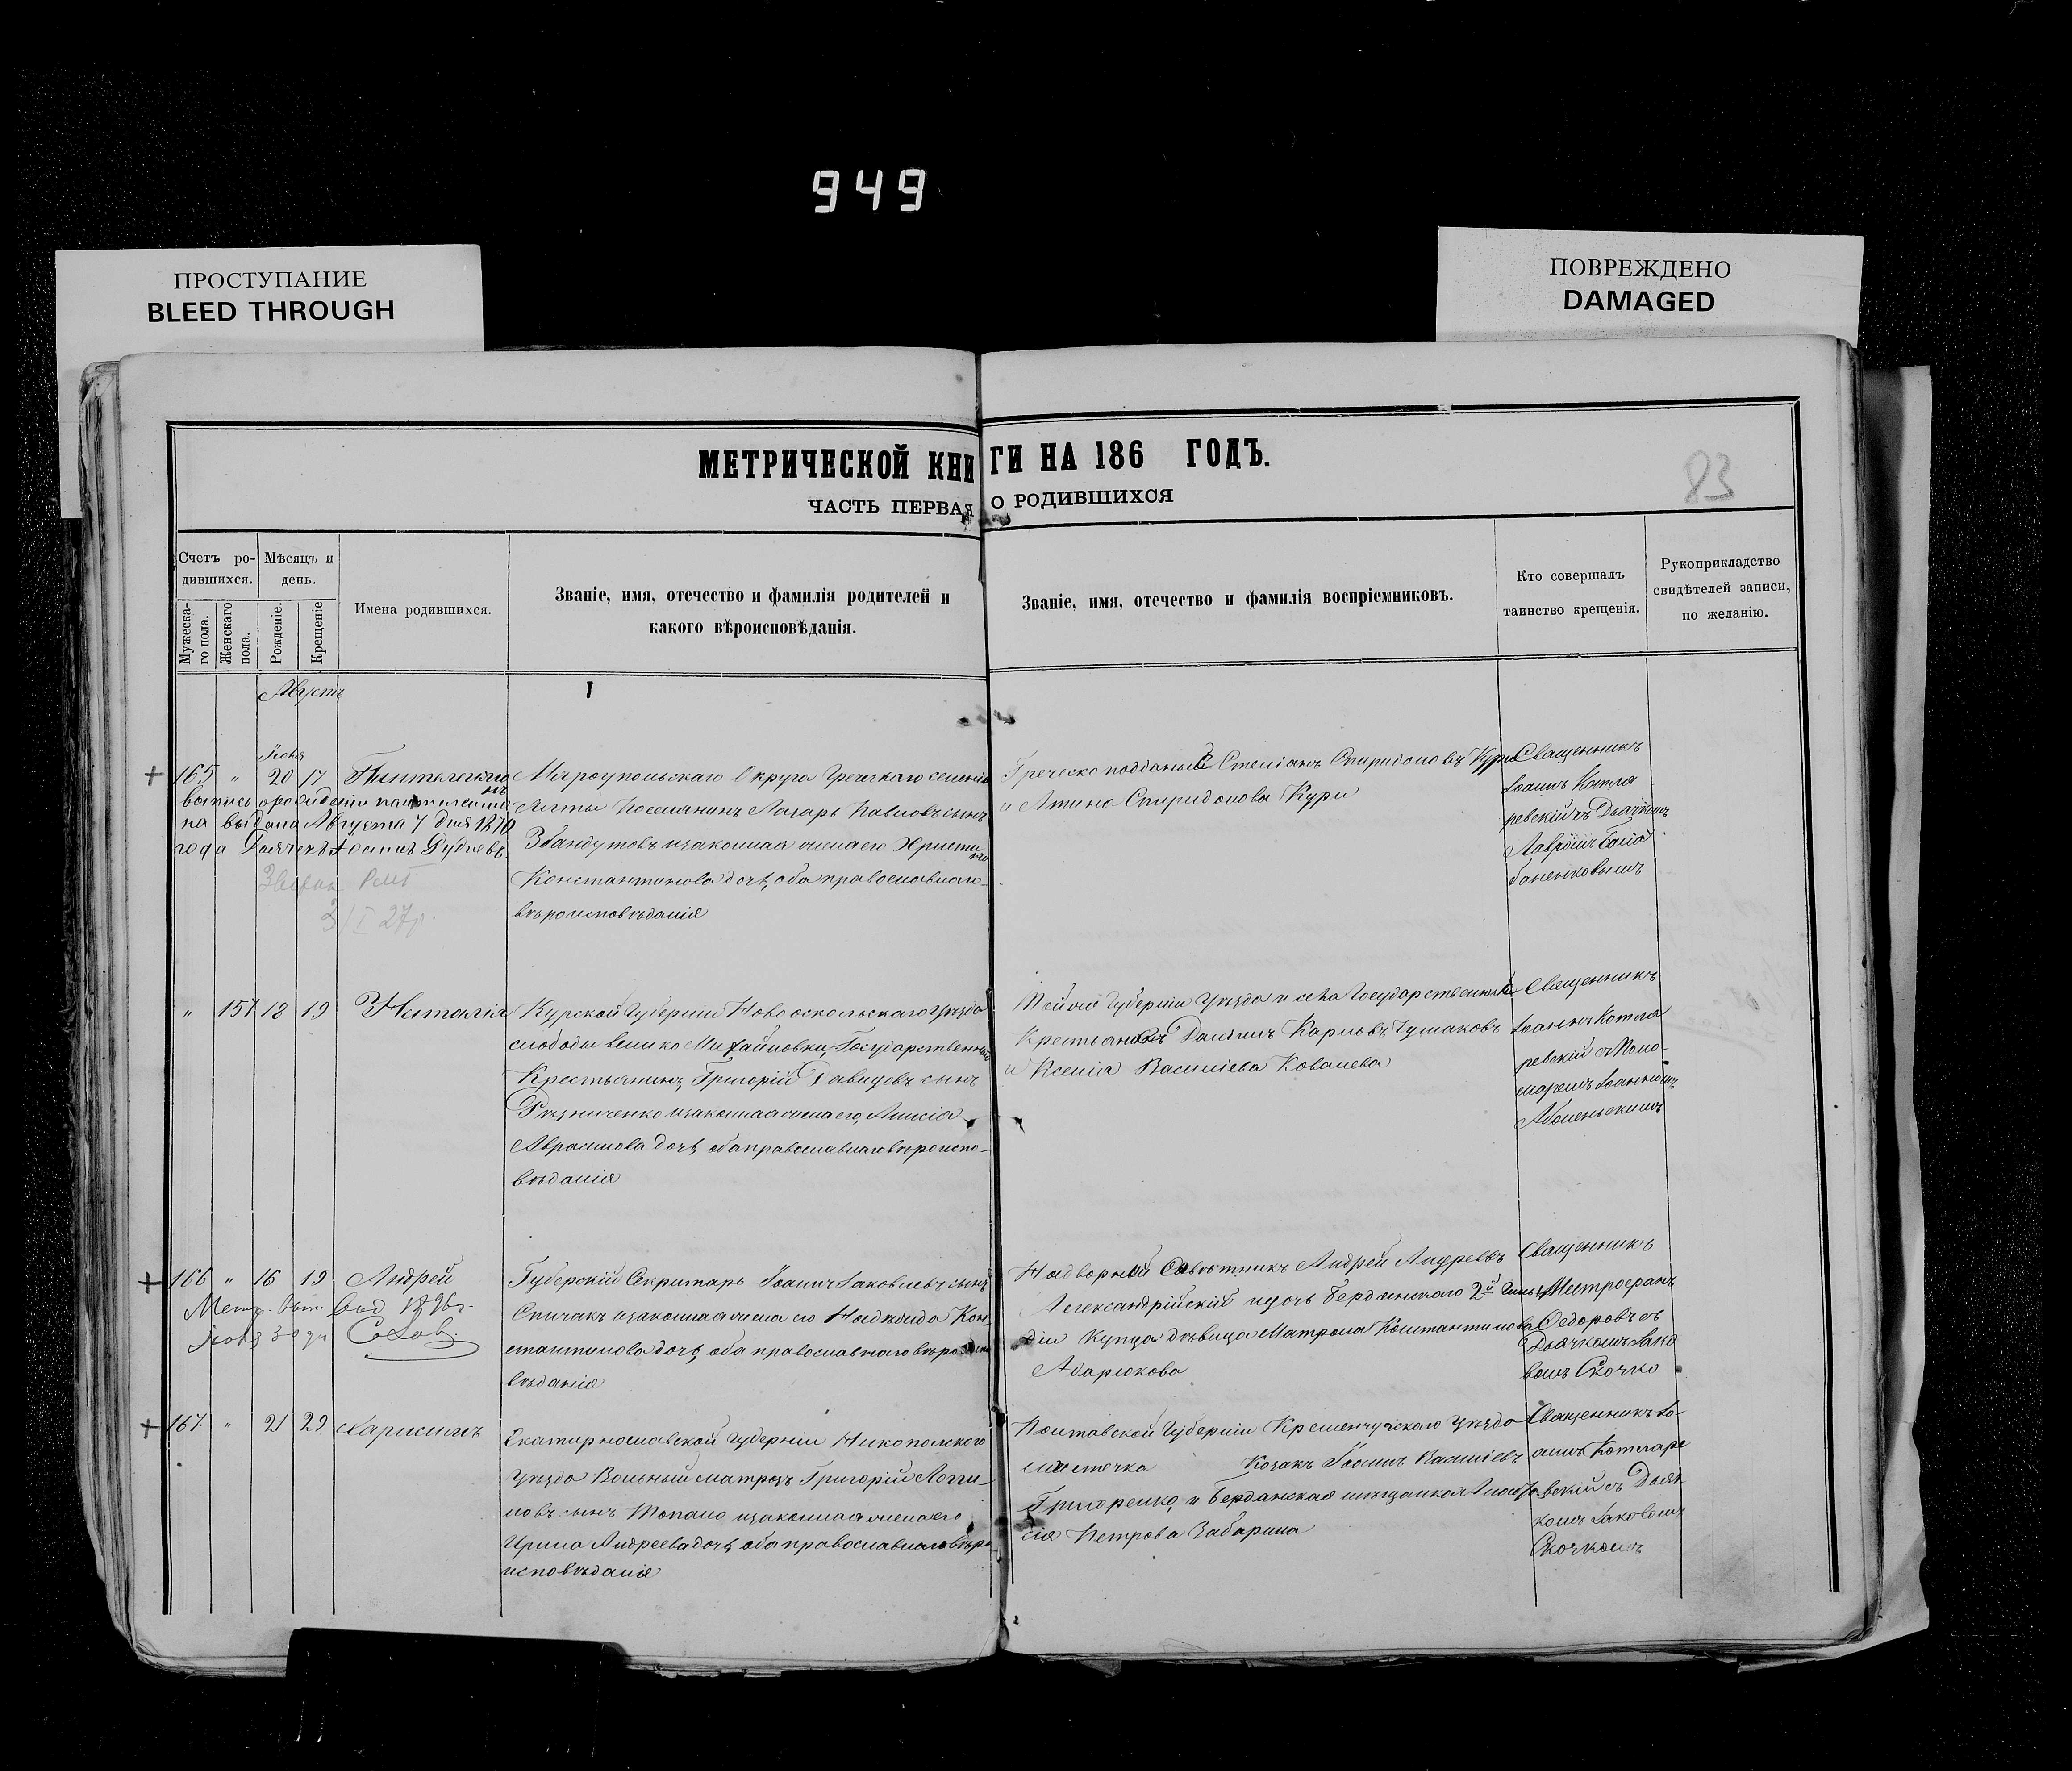 949
ПРОСТУПАНИЕ
BLEED THROUGH
ПОВРЕЖДЕНО
DAMAGED
МЕТРИЧЕСКОЙ КНИГИ НА 186 ГОДЪ.
83
ЧАСТЬ ПЕРВАЯ О РОДИВШИХСЯ
Счетъ ро-
дившихся.
Мѣсяцъ и
день.
Мужеска-
го пола.
Женскаго
пола.
Рожденіе.
Крещеніе
Имена родившихся.
Званіе, имя, отечество и фамилія родителей и
какого вѣроисповѣданія.
Званіе, имя, отечество и фамилія воспріемниковъ.
Кто совершалъ
таинство крещенія.
Рукоприкладство
свидѣтелей записи,
по желанію.
Августъ
Іюля
165 " 20 17
Мароупольскаго Округа Греческаго селенія
Ялты Поселянинъ Лазарь Павловъ сынъ
Збандутовъ изаконная жена его Христи
Константинова дочь, оба православнаго
вѣроисповѣданія
выдана Августа 7 дня 1870
года
27
Греческо подданый Стеліанъ Спиридоновъ Кури
и Атина Спиридонова Кури
Священникъ
Іоаннъ Котля
ревскій съ Дьячкомъ
" 157 18 19 Наталія
Курской Губерніи Новооскольскаго уѣзда
слободы велико Михайловки, Государственный
Крестьянинъ, Григорій Давидовъ сынъ
Рѣзниченко изаконная жена его, Анисія
Аврамова дочь, оба православнаго вѣроиспо-
вѣданія
Той же Губерніи Уѣзда и села Государственный
Крестьянинъ Даніилъ Карповъ Чумаковъ
и Ксенія Василіева Ковалева
Священникъ
Іоаннъ Котля
ревскій съ Поно-
маремъ Іоанномъ
166 " 16 19 Андрей
Губерскій Секритарь Іоаннъ Іаковлевъ сынъ
Спичакъ изаконная жена его Надежда Кон-
стантинова дочь, оба православнаго вѣроиспо
вѣданія
Надворный Совѣтникъ Андрей Андреевъ
Александрійскій и дочь Бердянскаго 2й Гиль
діи Купца дѣвица Матрона Константинова
Абарюкова
Священникъ
Митрофанъ
Ѳедоровъ съ
Дьячкомъ Іако
вомъ Скочко
167 " 21 29 Харисимъ
Екатирнославской Губерніи Никопольского
уѣзда Вольный матрозъ Григорій Логги-
новъ сынъ Топало изаконная жена его
Ирина Андреева дочь, оба православнаго вѣро
исповѣданія
Полтавской Губерніи Кременчугскаго уѣзда
мѣстечка Козакъ Іоаннъ Василіевъ
Григоренко, и Бердянская мѣщанка Анаста
сія Петрова Забарина
Священникъ Іо-
аннъ Котляре
вскій съ Дьяч
комъ Іаковомъ
Скочкомъ